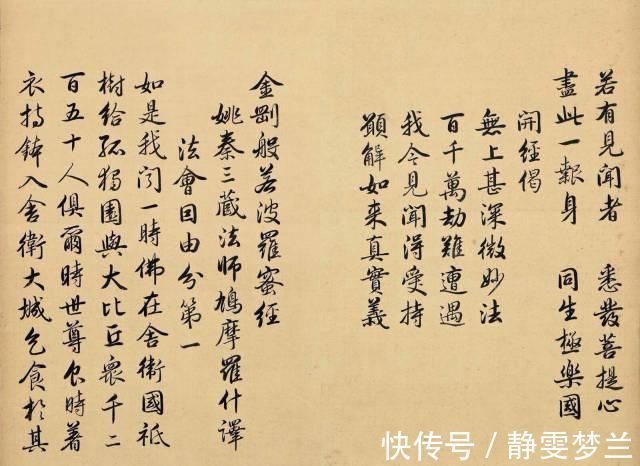 若有見聞者 悉發菩提心
盡此一報身 同生極樂國
開經偈
無上甚深微妙法
百千萬劫難遭遇
我今見聞得受持
願解如来真實義
金剛般若波羅蜜經
姚秦三藏法師鳩摩羅什譯
法會因由分第一
如是我聞一時佛在舍衛國祇
樹給孤獨園與大比丘眾千二
百五十人俱爾時世尊食時著
衣持鉢入舍衛大城乞食於其
快传号 / 静雯梦兰